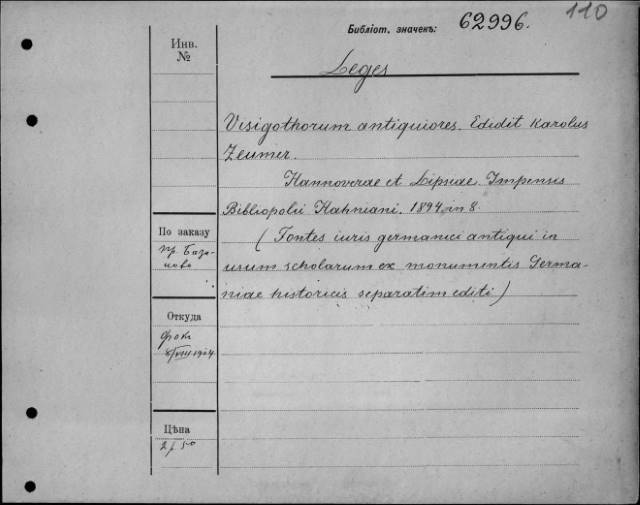 110
Библіот. значекъ: 62996.
Инв.
№
Leges
Visigothorum antiquiores. Edidit Karolus
Zeumer.
Hannoverae et Lipsiae. Impensis
Bibliopolii Hahniani. 1894. in 8.
(Fontes iuris germanici antiqui in
usum scholarum ex monumentis Germa-
niae historicis separatim editi)
По заказу
пр База-
нова
Откуда
фок
VIII 1924
Цѣна
2 р 50